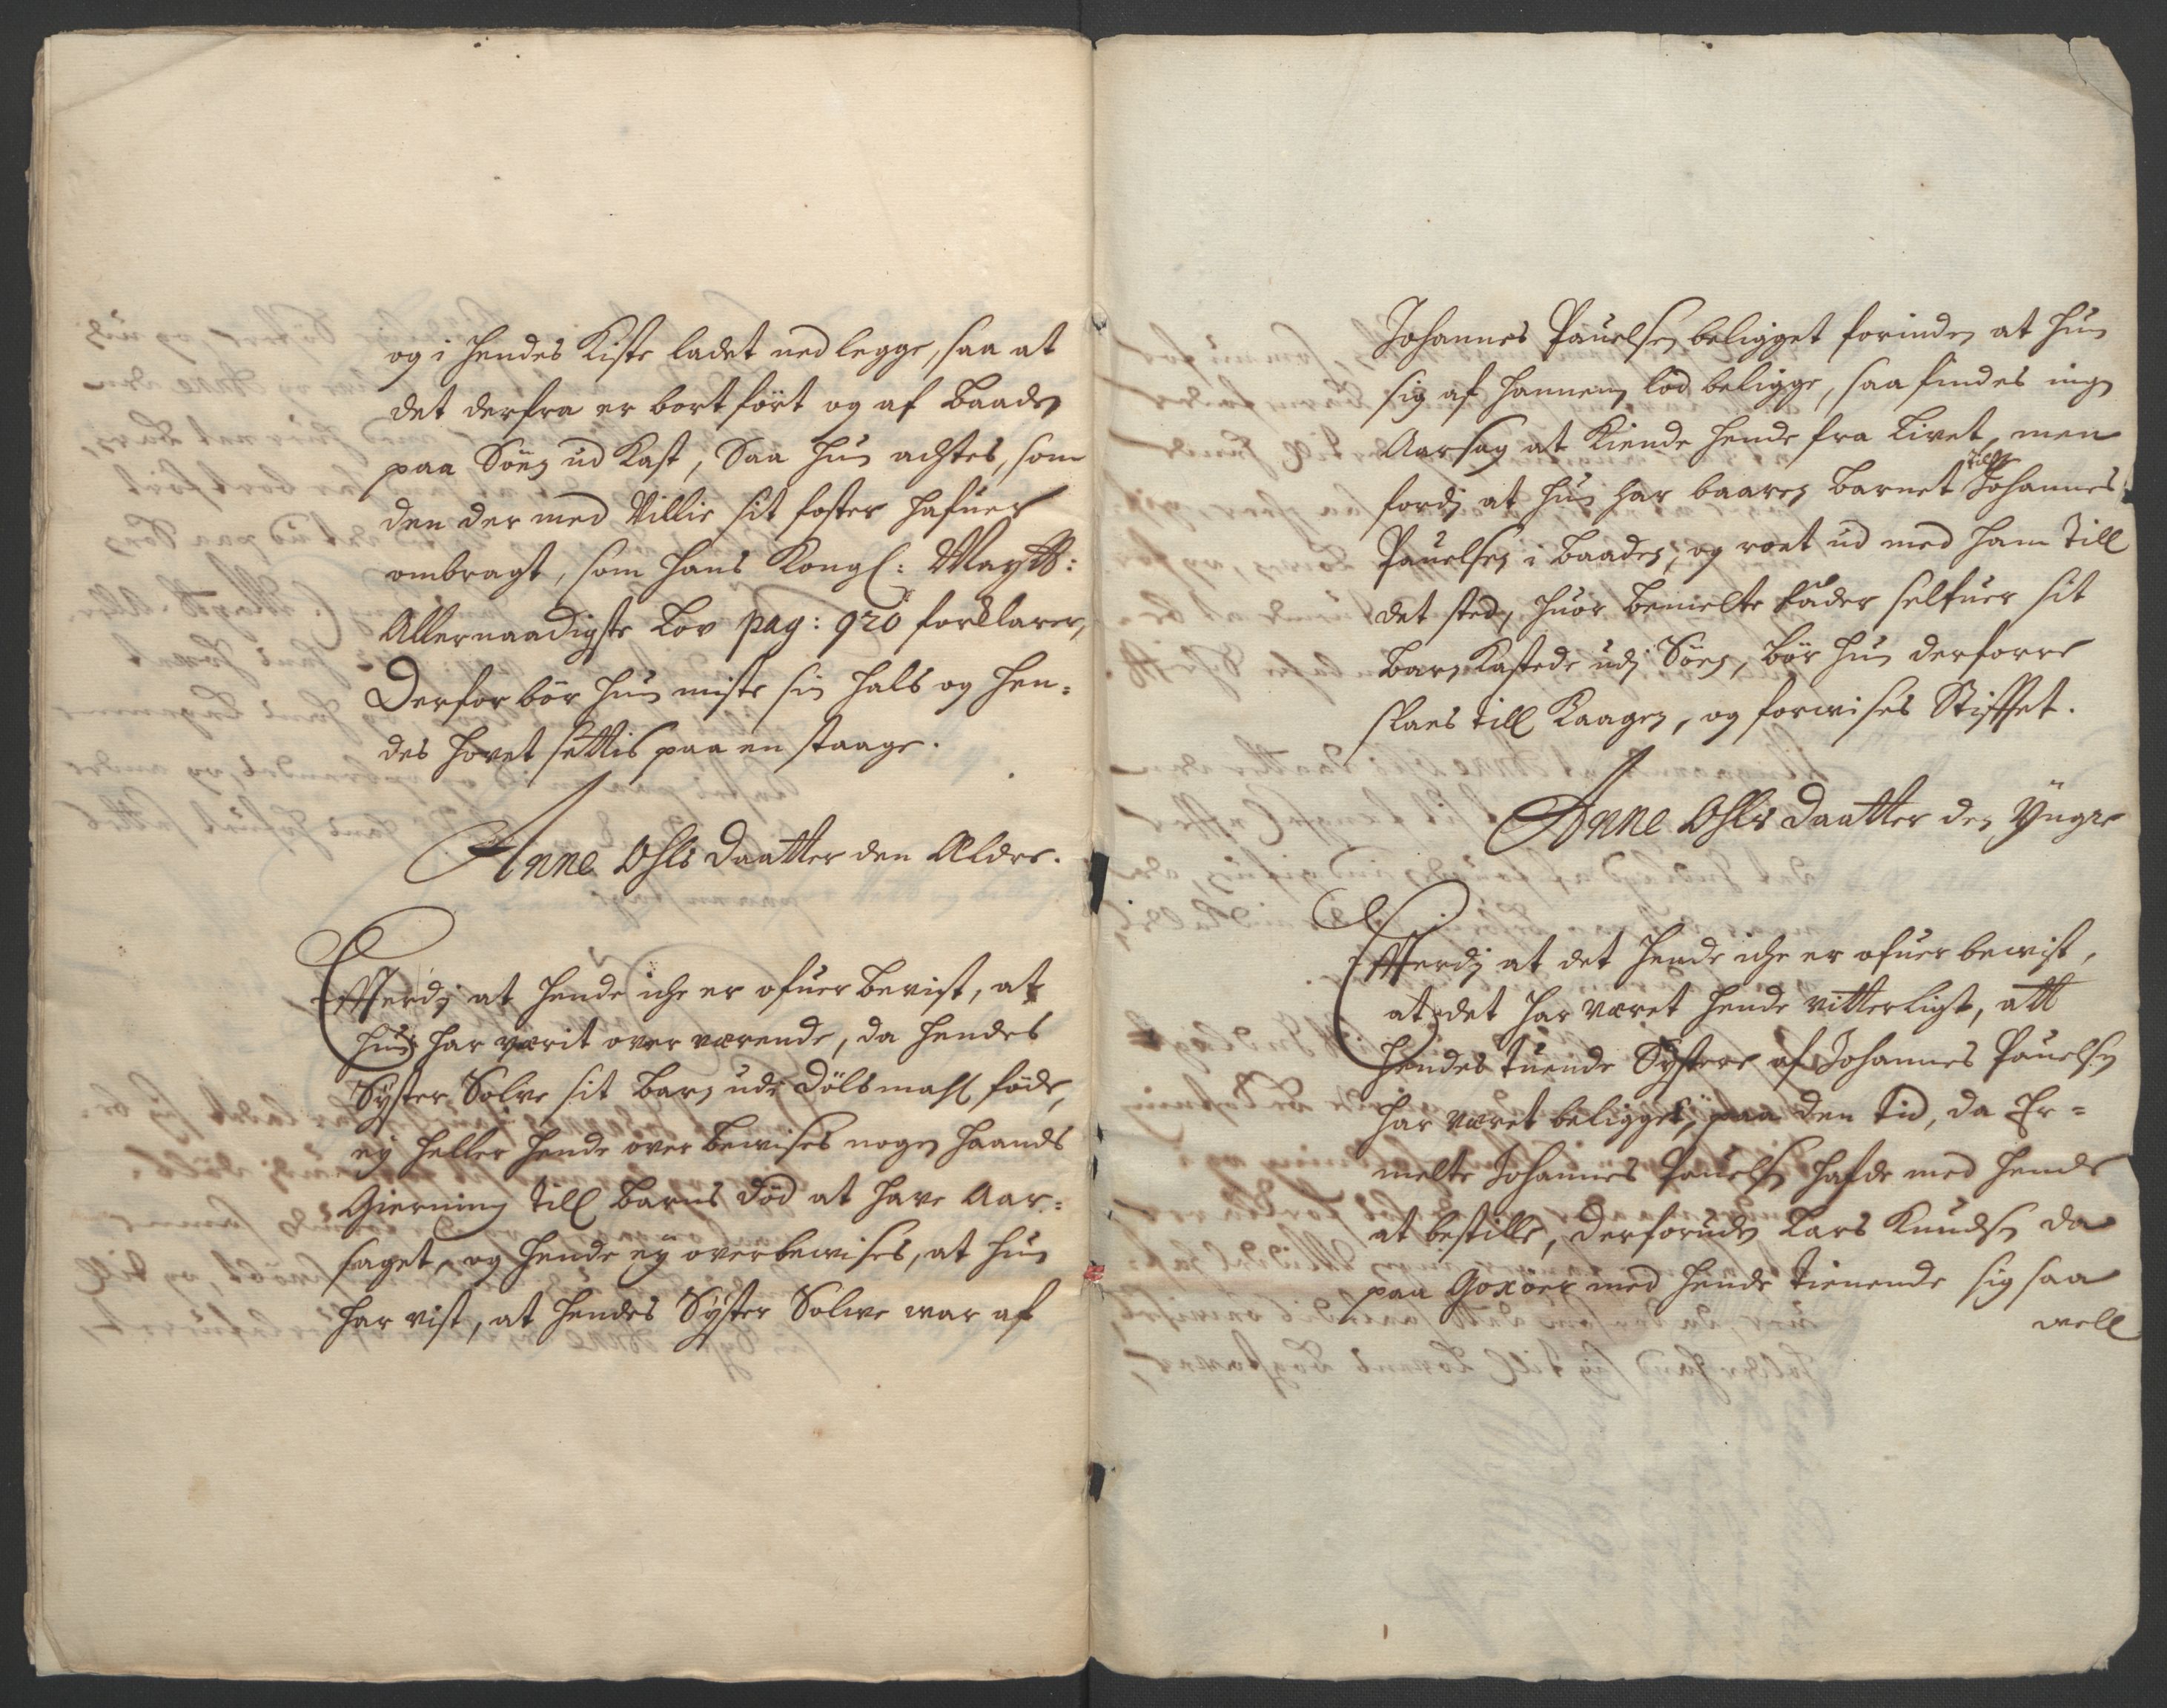 og i hendes Kiste ladet ned legge, saa at
det derfra er bort fört og af Baaden
paa Söen ud Kast, Saa hun achtes, som
den der med Villie sit foster hafuer
ombragt, som hans Kongl: Maystt:
Allernaadigste Lov pag: 920 forklarer,
Derfor bör hun miste sin hals og hen=
des hovet sættis paa en staage.
Anne Ohls Daatter den Ældre.
Efferdj at hende iche er ofuer bevist, at
hun har værit over værende, da hendes
Syster Solve sit barn udj dölsmahl föde,
ej heller hende over bewises nogen haands
Gierning till barns död at have Aar=
saget, og hende ey overbewises, at hun
har vist, at hendes Syster Solwe war af
Johannes Pauelsen beligget forinden at hun
sig af hannem lod beligge, saa findes ingen
Aarsag at Kiende hende fra Livet, men
fordj at hun har baaren barnet till Johannes
Pauelsen i baaden, og roet ud med ham till
det sted, huor bemelte fader selfuer sit
barn Kastede udj Söen, bör hun derforre
slaes till Kaagen, og forwises Stifftet.
Anne Ohls Daatter den Yngre
Efferdj at det hende iche er ofuer bewist,
at det har været hende vitterligt, att
hendes tuende Systere af Johannes Pauelsen
har været beligget, paa den tid, da Er=
melte Johannes Pauelsen hafde med hende
at bestille, derforuden Lars Knudsen da
paa Goxöer med hende tienende sig saa
well